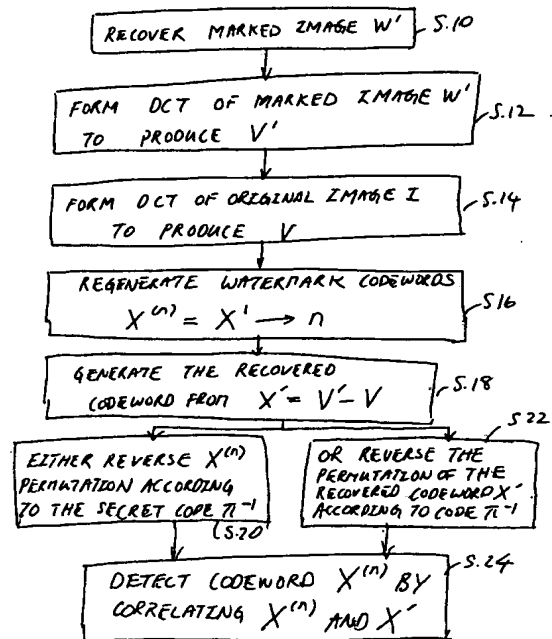 RECOVER MARKED IMAGE W'
S.10
FORM DCT OF MARKED IMAGE W'
TO PRODUCE V'
S.12
FORM DCT OF ORIGINAL IMAGE I
TO PRODUCE V
S.14
REGENERATE WATERMARK CODEWORDS
X⁽ⁿ⁾ = X¹ → n
S16
GENERATE THE RECOVERED
CODEWORD FROM X' = V' - V
S.18
EITHER REVERSE X⁽ⁿ⁾
PERMUTATION ACCORDING
TO THE SECRET CODE π⁻¹
S.20
OR REVERSE THE
PERMUTATION OF THE
RECOVERED CODEWORD X'
ACCORDING TO CODE π⁻¹
S22
DETECT CODEWORD X⁽ⁿ⁾ BY
CORRELATING X⁽ⁿ⁾ AND X'
S.24